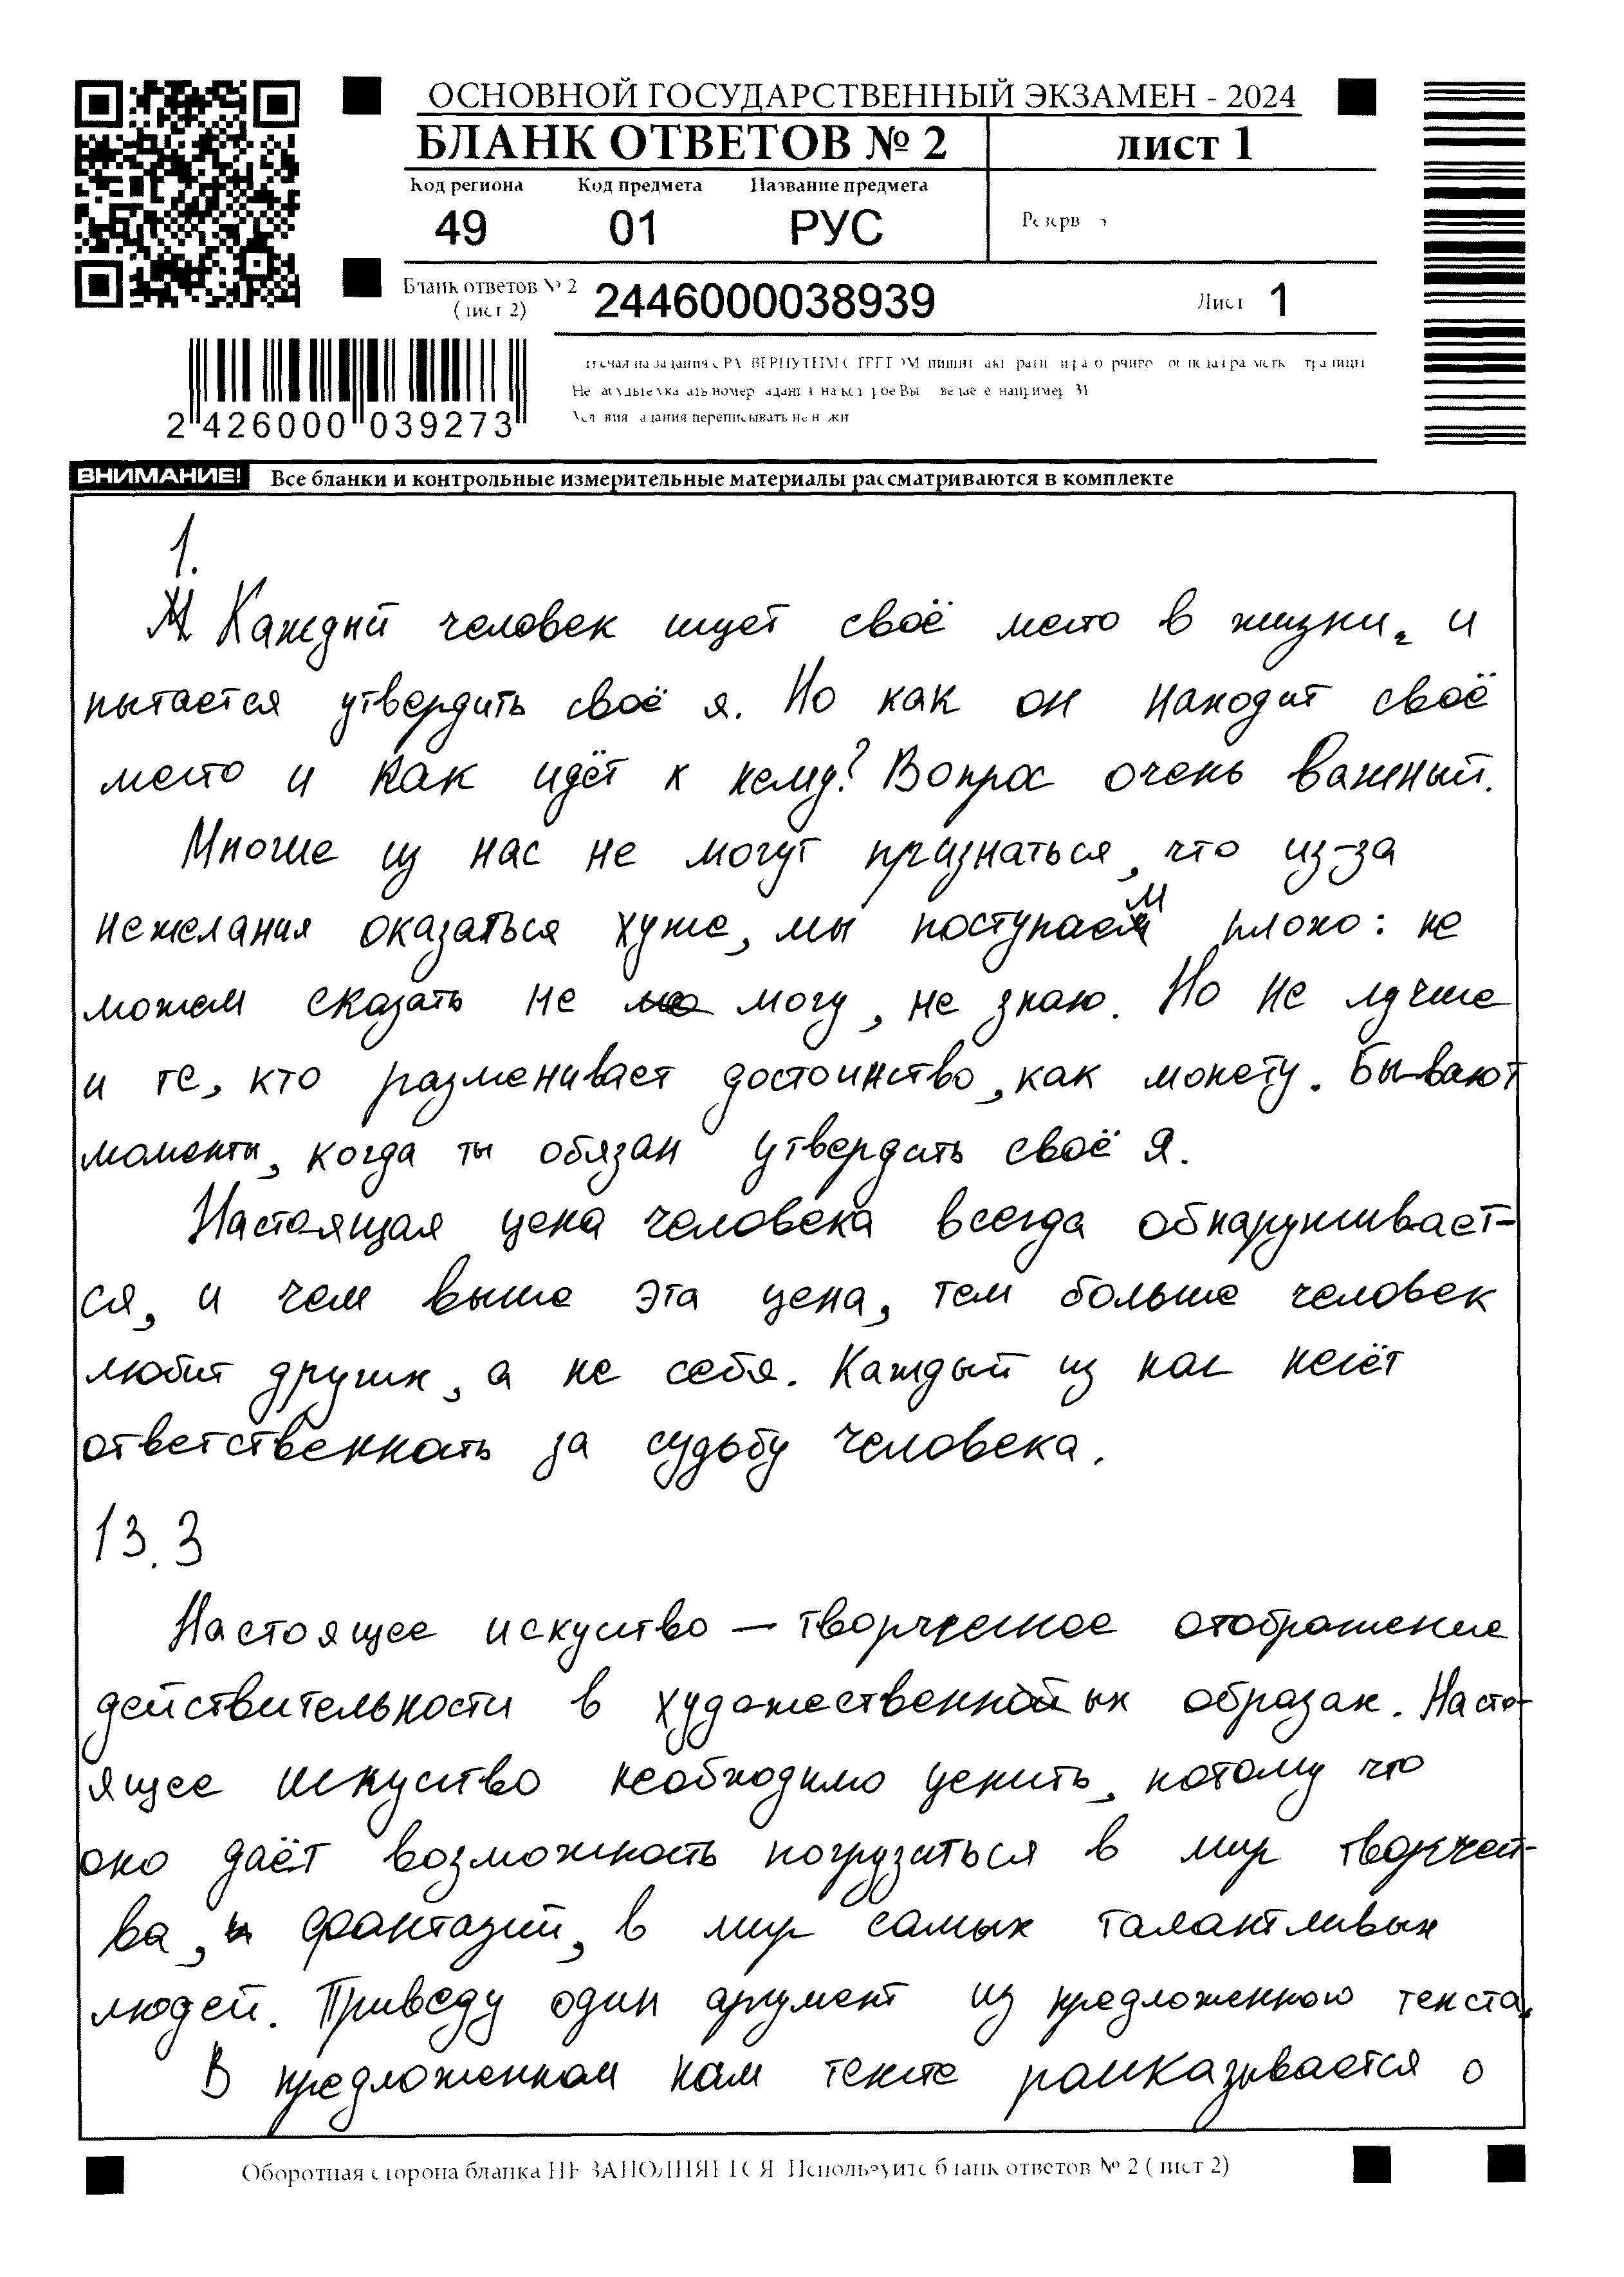 ОСНОВНОЙ ГОСУДАРСТВЕННЫЙ ЭКЗАМЕН - 2024
БЛАНК ОТВЕТОВ № 2 лист 1
Код региона Код предмета Название предмета
49 01 РУС
Резерв
Бланк ответов № 2 (лист 2) 2446000038939 Лист 1
2 426000 039273
ВНИМАНИЕ! Все бланки и контрольные измерительные материалы рассматриваются в комплекте
1.
Каждый человек ищет своё место в жизни, и
пытается утвердить своё я. Но как он находит своё
место и как идёт к нему? Вопрос очень важный.
Многие из нас не могут признаться, что из-за
нежелания оказаться хуже, мы поступаем плохо: не
можем сказать не могу, не знаю. Но не лучше
и те, кто разменивает достоинство, как монету. Бывают
моменты, когда ты обязан утвердить своё Я.
Настоящая цена человека всегда обнаруживает-
ся, и чем выше эта цена, тем больше человек
любит других, а не себя. Каждый из нас несёт
ответственность за судьбу человека.
13.3
Настоящее искуство — творческое отображение
действительности в художественных образах. Насто-
ящее искуство необходимо ценить, потому что
оно даёт возможность погрузиться в мир творчест-
ва, фантазий, в мир самых талантливых
людей. Приведу один аргумент из предложенного текста.
В предложенном нам тексте рассказывается о
Оборотная сторона бланка НЕ ЗАПОЛНЯЕТСЯ. Используйте бланк ответов № 2 (лист 2)